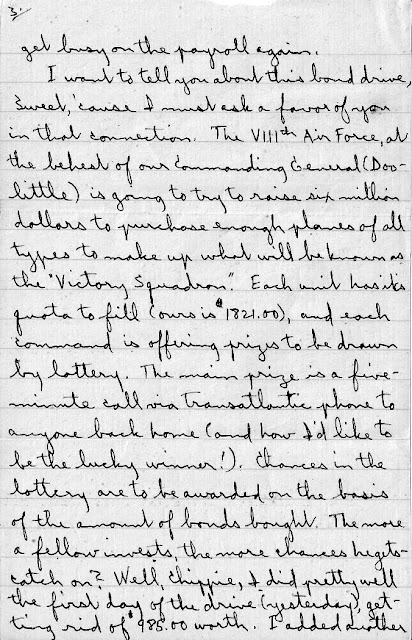 3.
get busy on the payroll again.
I want to tell you about this bond drive,
Sweet, 'cause I must ask a favor of you
in that connection. The VIIIth Air Force, at
the behest of our Commanding General (Doo-
little) is going to try to raise six million
dollars to purchase enough planes of all
types to make up what will be known as
the "Victory Squadron". Each unit has its
quota to fill (ours is $1821.00), and each
command is offering prizes to be drawn
by lottery. The main prize is a five-
minute call via transatlantic phone to
anyone back home (and how I'd like to
be the lucky winner!). Chances in the
lottery are to be awarded on the basis
of the amount of bonds bought. The more
a fellow invests, the more chances he gets-
catch on? Well, Chippie, I did pretty well
the first day of the drive (yesterday), get-
ting rid of $985.00 worth. I added another